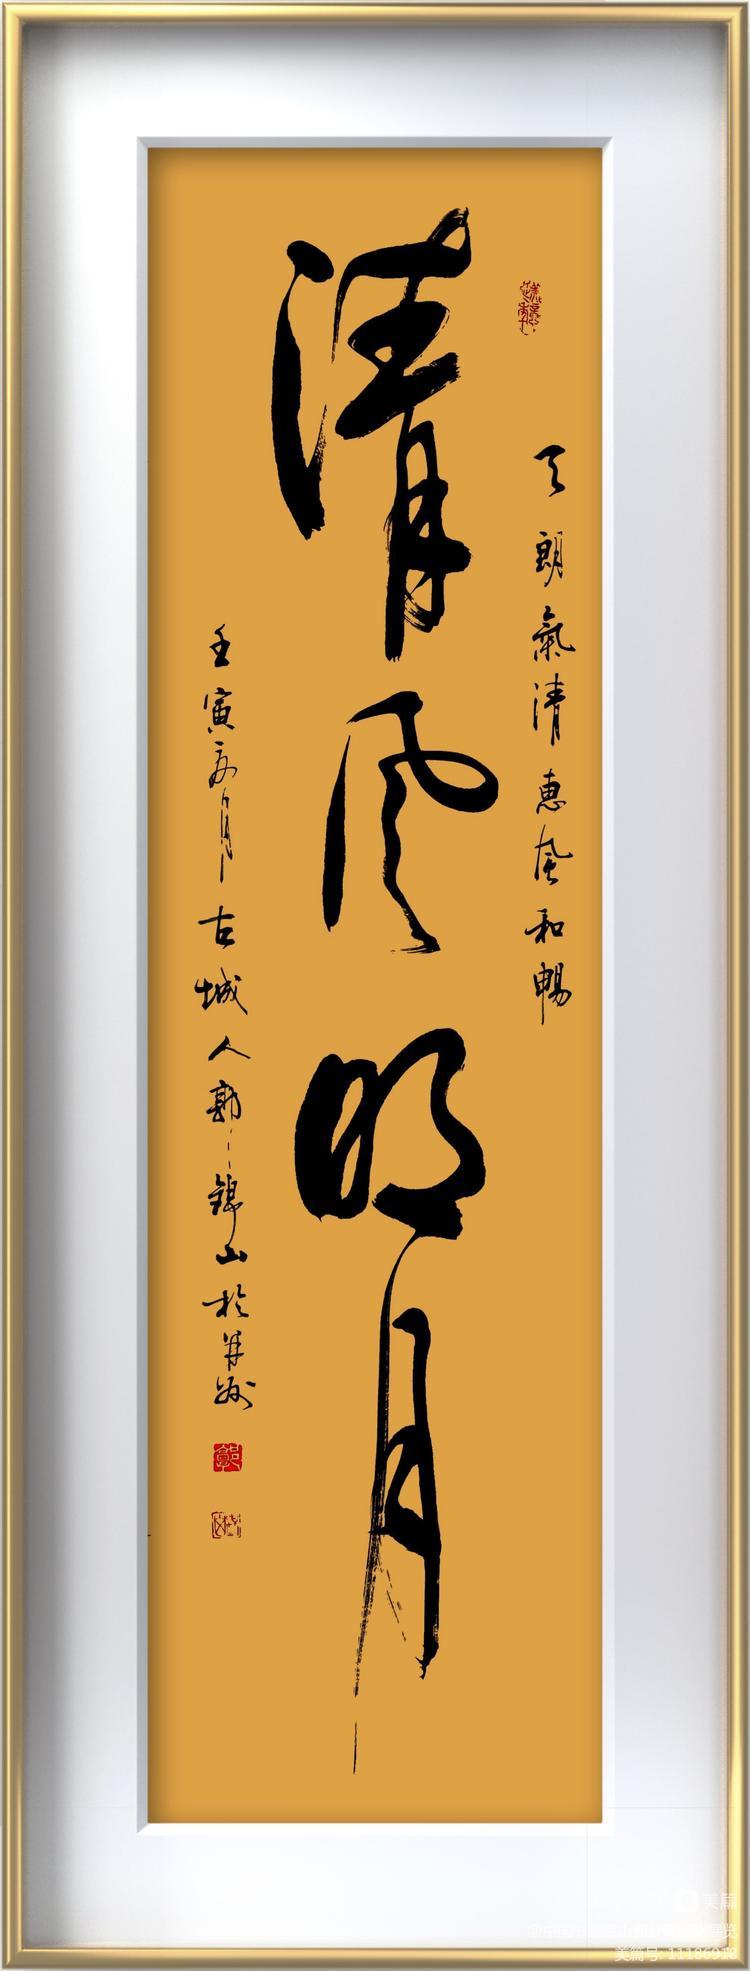 天朗氣清惠風和暢
清风明月
壬寅亥月古城人郭錦山於并州
美篇
美篇号:11186918